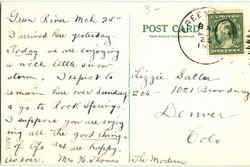 Dear Rosa Mch 25 -
I arrived here yesterday.
Today we are enjoying
a nice little snow
storm. I expect to
remain here over Sunday
& go to Springs.
I suppose you are enjoy
ing all the good things
of life and are happy.
as ever. Mrs H Thomas
POST CARD
Lizzie Saller
1021 Broadway
Denver
Colo
The Modern